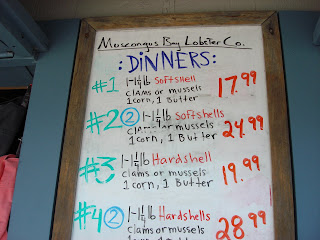 Moscongus Bay Lobster Co.
:DINNERS:
#1 1-1¼lb Softshell 17.99
clams or mussels
1 corn, 1 Butter
#2 ② 1-1¼lb Softshells 24.99
clams or mussels
1 corn, 1 Butter
#3 1-1¼lb Hardshell 19.99
clams or mussels
1 corn, 1 Butter
#4 ② 1-1¼lb Hardshells 28.99
clams or mussels